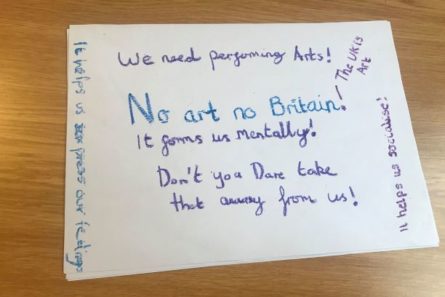 We need performing Arts!
The UK is
Art
No art no Britain!
It forms us mentally!
Don't you Dare take
that away from us!
It helps us express our feelings
It helps us socialise!